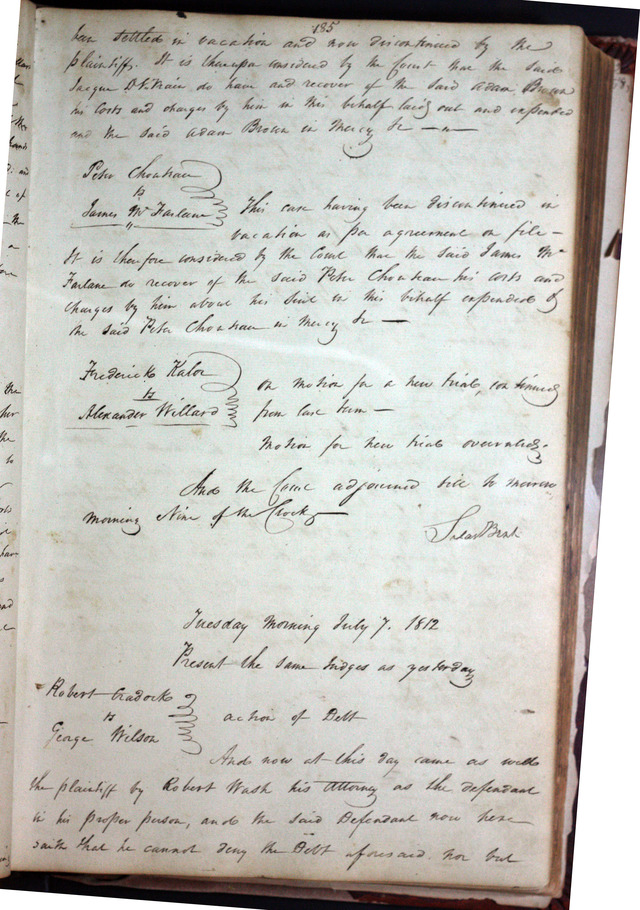 185
been settled in vacation and now discontinued by the
plaintiff. It is thereupon considered by the Court that the said
Jacque St Vrain do have and recover of the said Adam Brown
his Costs and charges by him in this behalf laid out and expended
and the said Adam Brown in Mercy &c
Peter Chouteau
vs
James Mc Farlane
This case having been discontinued in
vacation as per agreement on file -
It is therefore considered by the Court that the said James Mc
Farlane do recover of the said Peter Chouteau his costs and
charges by him about his suit in this behalf expended &
the said Peter Chouteau in Mercy &c
Frederick Kalor
vs
Alexander Willard
On motion for a new trial, continued
from last term -
Motion for new trial overruled.
And the Court adjourned till to morrow
Morning Nine of the Clock
Silas Bent
Tuesday Morning July 7. 1812
Present the same Judges as yesterday
Robert Cradock
vs
George Wilson
action of Debt
And now at this day came as well
the plaintiff by Robert Wash his Attorney as the defendant
in his proper person, and the said Defendant now here
saith that he cannot deny the Debt aforesaid nor but